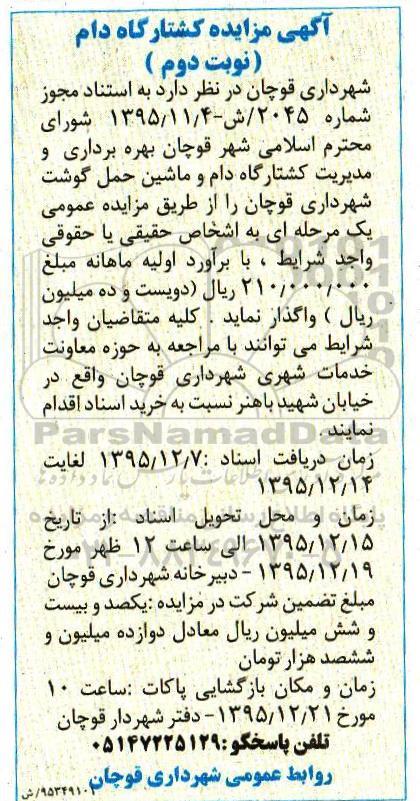 آگهی مزایده کشتارگاه دام
(نوبت دوم)
شهرداری قوچان در نظر دارد به استناد مجوز
شماره ۲۰۴۵/ش-۱۳۹۵/۱۱/۴ شورای
محترم اسلامی شهر قوچان بهره برداری و
مدیریت کشتارگاه دام و ماشین حمل گوشت
شهرداری قوچان را از طریق مزایده عمومی
یک مرحله ای به اشخاص حقیقی یا حقوقی
واجد شرایط ، با برآورد اولیه ماهانه مبلغ
۲۱۰/۰۰۰/۰۰۰ ریال (دویست و ده میلیون
ریال ) واگذار نماید . کلیه متقاضیان واجد
شرایط می توانند با مراجعه به حوزه معاونت
خدمات شهری شهرداری قوچان واقع در
خیابان شهید باهنر نسبت به خرید اسناد اقدام
نمایند
ParsNamadData
زمان دریافت اسناد :۱۳۹۵/۱۲/۷ لغایت
۱۳۹۵/۱۲/۱۴
زمان و محل تحویل اسناد :از تاریخ
۱۳۹۵/۱۲/۱۵ الی ساعت ۱۲ ظهر مورخ
۱۳۹۵/۱۲/۱۹ - دبیرخانه شهرداری قوچان
مبلغ تضمین شرکت در مزایده :یکصد و بیست
و شش میلیون ریال معادل دوازده میلیون و
ششصد هزار تومان
زمان و مکان بازگشایی پاکات :ساعت ۱۰
مورخ ۱۳۹۵/۱۲/۲۱- دفتر شهردار قوچان
تلفن پاسخگو :۰۵۱۴۷۲۲۵۱۲۹
روابط عمومی شهرداری قوچان